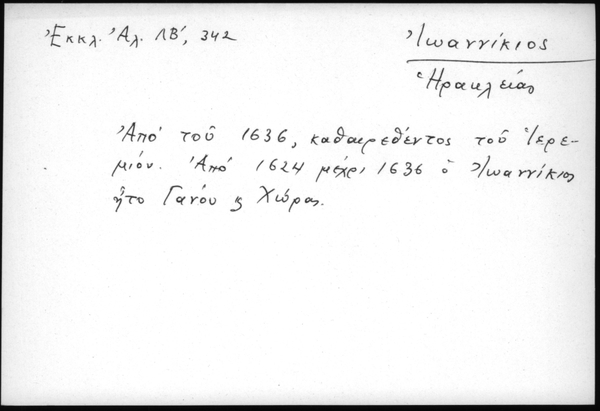 Ἐκκλ. Ἀλ. ΛΒ', 342
Ἰωαννίκιος
Ἡρακλείας
Ἀπὸ τοῦ 1636, καθαιρεθέντος τοῦ Ἱερε-
μίου. Ἀπὸ 1624 μέχρι 1636 ὁ Ἰωαννίκιος
ἦτο Γάνου ϗ Χώρας.